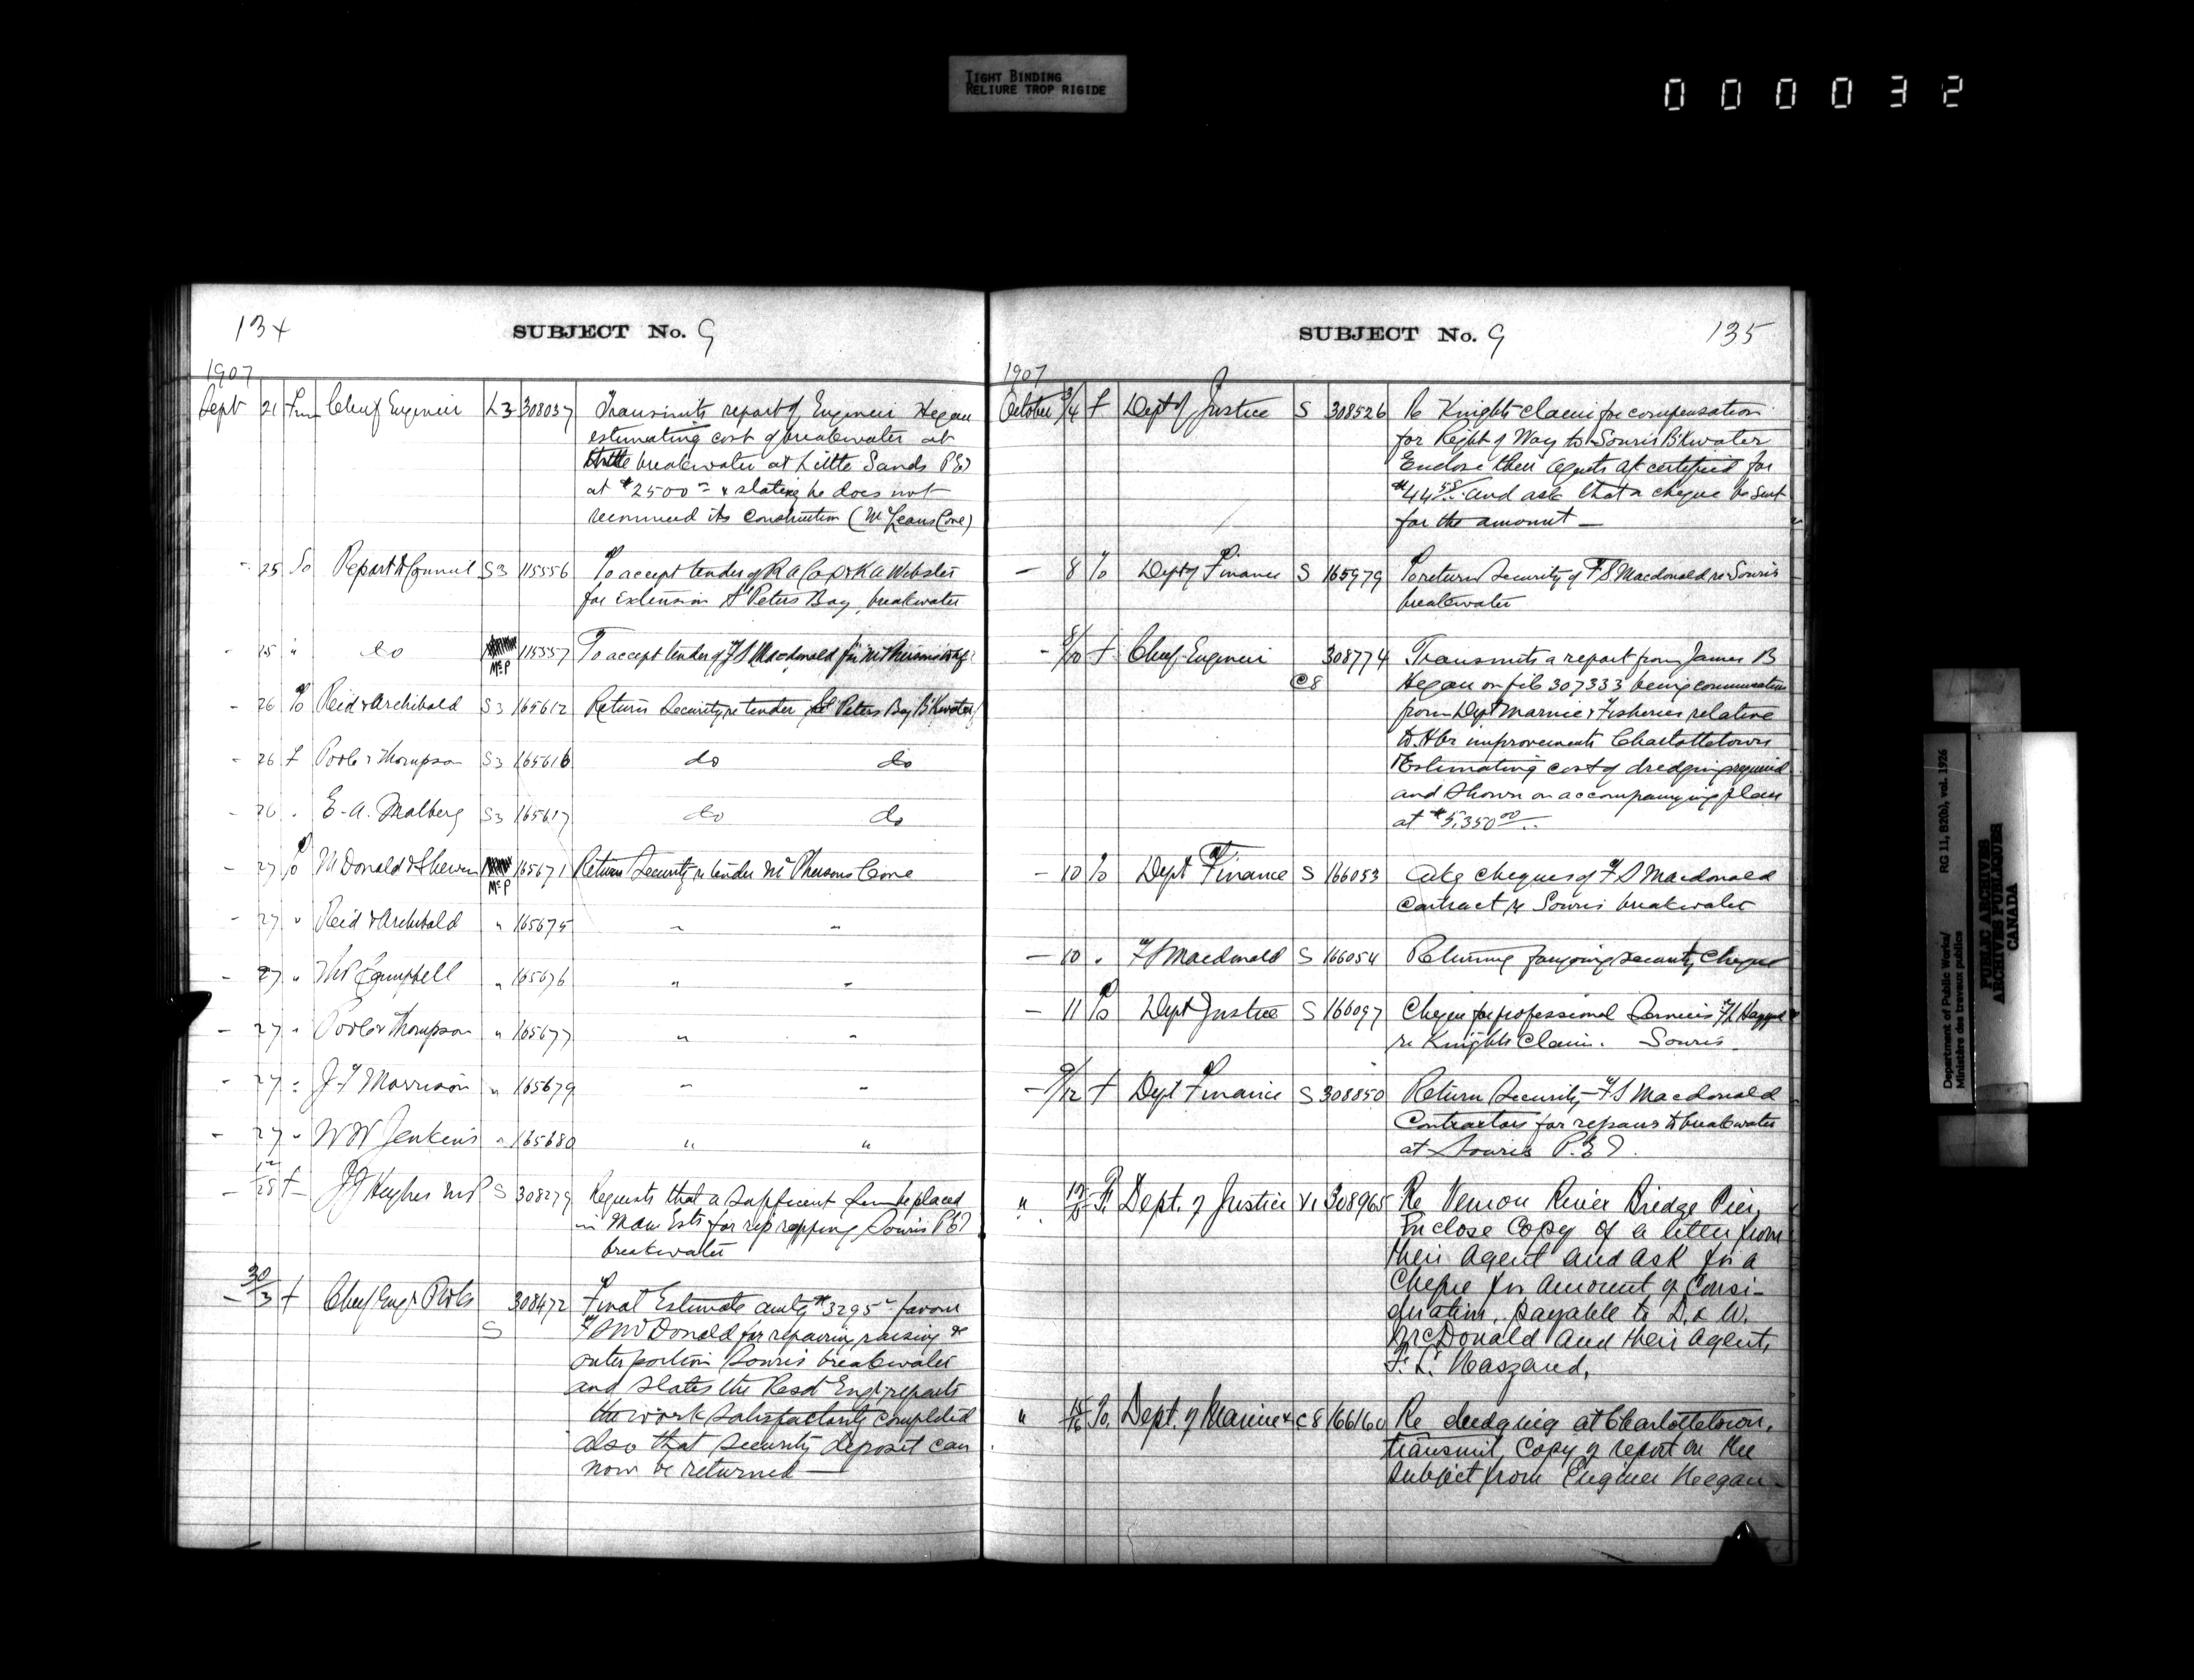 TIGHT BINDING
RELIURE TROP RIGIDE
000032
134
SUBJECT No. 9
1907
Sept 21 Frm Chief Engineer L3 308037 Transmits report of Engineer Hegan
estimating cost of breakwater at
breakwater at Little Sands PEI
at $2500 — & stating he does not
recommend its construction (McLeans Cove)
- 25 To Report to Council S3 115556 To accept tender of R A & K A Webster
for Extension St Peters Bay breakwater
- 25 " do McP 115557 To accept tender of F S Macdonald for McPhersons
- 26 To Reid & Archibald S3 165612 Return Security re tender St Peters Bay B'Kwater
- 26 f Poole & Thompson S3 165616 do do
- 26 . E. A. Malberg S3 165617 do do
- 27 To McDonald & McP 165671 Return Security re tender McPhersons Cove
- 27 " Reid & Archibald " 165675 " "
- 27 " Campbell " 165676 " "
- 27 " Poole & Thompson " 165677 " "
- 27 " J F Morrison " 165679 " "
- 27 " W W Jenkins " 165680 " "
- 28 f J J Hughes MP S 308279 Requests that a sufficient sum be placed
in Main Ests for rip rapping Souris PEI
breakwater
- 30/3 f Chief Engr 308472 Final Estimate amtg $3295 — favour
S F S McDonald for repairing raising &
outer portion Souris breakwater
and states the Resdt Engr reports
the work satisfactorily completed
also that security deposit can
now be returned —
SUBJECT No. 9
135
1907
October 3/4 f Dept of Justice S 308526 Re Knights claim for compensation
for Right of Way to Souris B'kwater
Enclose their agents a/c certified for
$44 and ask that a cheque be sent
for the amount —
— 8 To Dept of Finance S 165979 To return security of F S Macdonald re Souris
breakwater
- 8/10 f Chief Engineer 308774 Transmits a report from James B
C8 Hegan on file 307333 being communication
from Dept Marine & Fisheries relative
to Hbr improvements Charlottetown
Estimating cost of dredging required
and shown on accompanying plan
at $5,350.00
— 10 To Dept Finance S 166053 cheques of F S Macdonald
Contract re Souris breakwater
— 10 . F S Macdonald S 166054 Returning foregoing security cheque
— 11 To Dept Justice S 166097 Cheque for professional Services F L
re Knights Claim. Souris.
— 9/12 f Dept Finance S 308850 Return Security F S Macdonald
Contractors for repairs to breakwater
at Souris P.E.I.
" Fr. Dept. of Justice V1 308965 Re Vernon River Bridge Pier,
Enclose copy of a letter from
their agent and ask for a
cheque for amount of Consi-
deration, payable to D. & W.
McDonald and their Agent,
F. L. Haszard.
" 15/16 To. Dept. of Marine & C8 166160 Re dredging at Charlottetown,
transmit copy of report on the
subject from Engineer Heegan
Department of Public Works/
Ministère des travaux publics
RG 11, B2(b), vol. 1926
PUBLIC ARCHIVES
ARCHIVES PUBLIQUES
CANADA